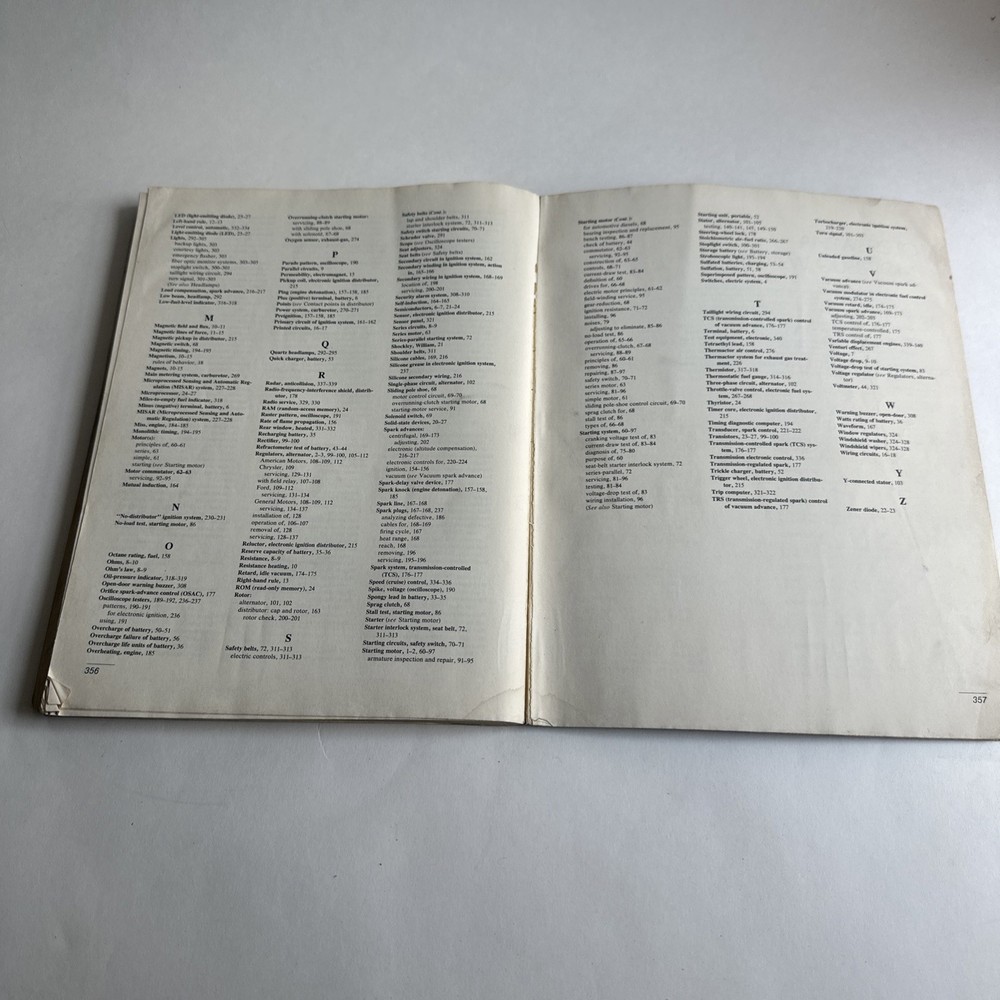 LED (light-emitting diode), 23–27
Left-hand rule, 13–15
Level control, automatic, 332–334
Light-emitting diode (LED), 23–27
Lights, 292–307
backup lights, 303
courtesy lights, 303
emergency flasher, 303
fiber optic monitor systems, 303–305
stoplight switch, 300–301
taillight wiring circuit, 294
turn signal, 301–303
(See also Headlamps)
Load compensation, spark advance, 216–217
Low beam, headlamp, 292
Low-fuel-level indicator, 316–318
M
Magnetic field and flux, 10–11
Magnetic lines of force, 11–15
Magnetic pickup in distributor, 215
Magnetic switch, 68
Magnetic timing, 194–195
Magnetism, 10–15
rules of behavior, 10
Magnets, 10–15
Main metering system, carburetor, 269
Microprocessed Sensing and Automatic Reg-
ulation (MISAR) system, 227–228
Microprocessor, 24–27
Miles-to-empty fuel indicator, 318
Minus (negative) terminal, battery, 6
MISAR (Microprocessed Sensing and Auto-
matic Regulation) system, 227–228
Miss, engine, 184–185
Monolithic timing, 194–195
Motor(s):
principles of, 60–61
series, 63
simple, 61
starting (see Starting motor)
servicing, 92–95
Motor commutator, 62–63
Mutual induction, 164
N
"No-distributor" ignition system, 230–231
No-load test, starting motor, 86
O
Octane rating, fuel, 158
Ohms, 8–10
Ohm's law, 8–9
Oil-pressure indicator, 318–319
Open-door warning buzzer, 308
Orifice spark-advance control (OSAC), 177
Oscilloscope testers, 189–192, 236–237
patterns, 190–191
for electronic ignition, 236
using, 191
Overcharge of battery, 50–51
Overcharge failure of battery, 56
Overcharge life units of battery, 36
Overheating, engine, 185
356
Overrunning-clutch starting motor:
servicing, 88–89
with sliding pole shoe, 68
with solenoid, 67–68
Oxygen sensor, exhaust gas, 274
P
Parade pattern, oscilloscope, 190
Parallel circuits, 9
Permeability, electromagnet, 13
Pickup coil, electronic ignition distributor,
215
Ping (engine detonation), 157–158, 185
Plus (positive) terminal, battery, 6
Points (see Contact points in distributor)
Power system, carburetor, 270–271
Preignition, 157–158, 185
Primary circuit of ignition system, 161–162
Printed circuits, 16–17
Q
Quartz headlamps, 292–295
Quick charger, battery, 53
R
Radar, anticollision, 337–339
Radio-frequency-interference shield, distrib-
utor, 178
Radio service, 329, 330
RAM (random-access memory), 24
Raster pattern, oscilloscope, 191
Rate of flame propagation, 156
Rear window, heated, 331–332
Recharging battery, 35
Rectifier, 99–100
Refractometer test of battery, 43–44
Regulators, alternator, 2–3, 99–100, 105–112
American Motors, 108–109, 112
Chrysler, 109
servicing, 129–131
with field relay, 107–108
Ford, 109–112
servicing, 131–134
General Motors, 108–109, 112
servicing, 134–137
installation of, 128
operation of, 106–107
removal of, 128
servicing, 128–137
Reluctor, electronic ignition distributor, 215
Reserve capacity of battery, 35–36
Resistance, 8–9
Resistance heating, 10
Retard, idle vacuum, 174–175
Right-hand rule, 13
ROM (read-only memory), 24
Rotor:
alternator, 101, 102
distributor: cap and rotor, 163
rotor check, 200–201
S
Safety belts, 72, 311–313
electric controls, 311–313
Safety belts (Cont.):
lap and shoulder belts, 311
starter interlock system, 72, 311–313
Safety switch starting circuits, 70–71
Schrader valve, 291
Seat adjusters, 324
Scope (see Oscilloscope testers)
Seat belts (see Safety belts)
Secondary circuit in ignition system, 162
Secondary winding in ignition system, action
in, 165–166
Secondary wiring in ignition system, 168–169
location of, 198
servicing, 200–201
Security alarm system, 308–310
Self-induction, 164–165
Semiconductors, 6–7, 21–24
Sensor, electronic ignition distributor, 215
Sensor panel, 321
Series circuits, 8–9
Series motor, 63
Series-parallel starting system, 72
Shockley, William, 21
Shoulder belts, 311
Silicone cables, 169, 216
Silicone grease in electronic ignition system,
237
Silicone secondary wiring, 216
Single-phase circuit, alternator, 102
Sliding pole shoe, 68
motor control circuit, 69–70
overrunning clutch starting motor, 68
starting-motor service, 91
Solenoid switch, 69
Solid-state devices, 20–27
Spark advance:
centrifugal, 169–173
adjusting, 202
electronic (altitude compensation),
216–217
electronic controls for, 220–224
ignition, 154–156
vacuum (see Vacuum spark advance)
Spark-delay valve device, 177
Spark knock (engine detonation), 157–158,
185
Spark line, 167–168
Spark plugs, 167–168, 237
analyzing defective, 186
cables for, 168–169
firing cycle, 167
heat range, 168
reach, 168
removing, 196
servicing, 195–196
Spark system, transmission-controlled
(TCS), 176–177
Speed (cruise) control, 334–336
Spike, voltage (oscilloscope), 190
Spongy lead in battery, 33–35
Sprag clutch, 68
Stall test, starting motor, 86
Starter (see Starting motor)
Starter interlock system, seat belt, 72,
311–313
Starting circuits, safety switch, 70–71
Starting motor, 1–2, 60–97
armature inspection and repair, 91–95
Starting motor (Cont.):
for automotive diesels, 68
bearing inspection and replacement, 95
bench testing, 86–87
check of battery, 80
commutator of, 62–63
servicing, 92–95
construction of, 63–65
controls, 68–71
current draw test, 83–84
definition of, 60
drives for, 66–68
electric motor principles, 61–62
field-winding service, 95
gear reduction, 68
ignition resistance, 71–72
installing, 96
noises, 79
adjusting to eliminate, 85–86
no-load test, 86
operation of, 65–66
overrunning clutch, 67–68
servicing, 88–89
principles of, 60–61
removing, 86
repairing, 87–97
safety switch, 70–71
series motor, 63
servicing, 81–96
simple motor, 61
sliding pole-shoe control circuit, 69–70
sprag clutch for, 68
stall test of, 86
types of, 66–68
Starting system, 60–97
cranking voltage test of, 83
current draw test of, 83–84
diagnosis of, 75–80
purpose of, 60
seat-belt starter interlock system, 72
series-parallel, 72
servicing, 81–96
testing, 81–84
voltage-drop test of, 83
wiring installation, 96
(See also Starting motor)
Starting unit, portable, 53
Stator, alternator, 101–103
testing, 140–141, 145, 149–150
Steering-wheel lock, 178
Stoichiometric air-fuel ratio, 206–207
Stoplight switch, 300–301
Storage battery (see Battery, storage)
Stroboscopic light, 193–194
Sulfated batteries, charging, 53–54
Sulfation, battery, 51, 58
Superimposed pattern, oscilloscope, 191
Switches, electric system, 4
T
Taillight wiring circuit, 294
TCS (transmission-controlled spark) control
of vacuum advance, 176–177
Terminal, battery, 6
Test equipment, electronic, 340
Tetraethyl lead, 158
Thermactor air control, 276
Thermactor system for exhaust gas treat-
ment, 226
Thermistor, 317–318
Thermostatic fuel gauge, 314–316
Three-phase circuit, alternator, 102
Throttle-valve control, electronic fuel sys-
tem, 267–268
Thyristor, 24
Timer core, electronic ignition distributor,
215
Timing diagnostic computer, 194
Transducer, spark control, 221–222
Transistors, 23–27, 99–100
Transmission-controlled spark (TCS) sys-
tem, 176–177
Transmission electronic control, 336
Transmission-regulated spark, 177
Trickle charger, battery, 52
Trigger wheel, electronic ignition distribu-
tor, 215
Trip computer, 321–322
TRS (transmission-regulated spark) control
of vacuum advance, 177
Turbocharger, electronic ignition system,
219–220
Turn signal, 301–303
U
Unleaded gasoline, 158
V
Vacuum advance (see Vacuum spark ad-
vance)
Vacuum modulator in electronic fuel control
system, 274–275
Vacuum retard, idle, 174–175
Vacuum spark advance, 169–173
adjusting, 202–203
TCS control of, 176–177
temperature-controlled, 177
TRS control of, 177
Variable displacement engines, 339–340
Venturi effect, 265
Voltage, 7
Voltage drop, 9–10
Voltage-drop test of starting system, 83
Voltage regulator (see Regulators, alterna-
tor)
Voltmeter, 46, 323
W
Warning buzzer, open-door, 308
Watts rating of battery, 36
Waveform, 167
Window regulators, 324
Windshield washer, 324–328
Windshield wipers, 324–328
Wiring circuits, 16–18
Y
Y-connected stator, 103
Z
Zener diode, 22–23
357